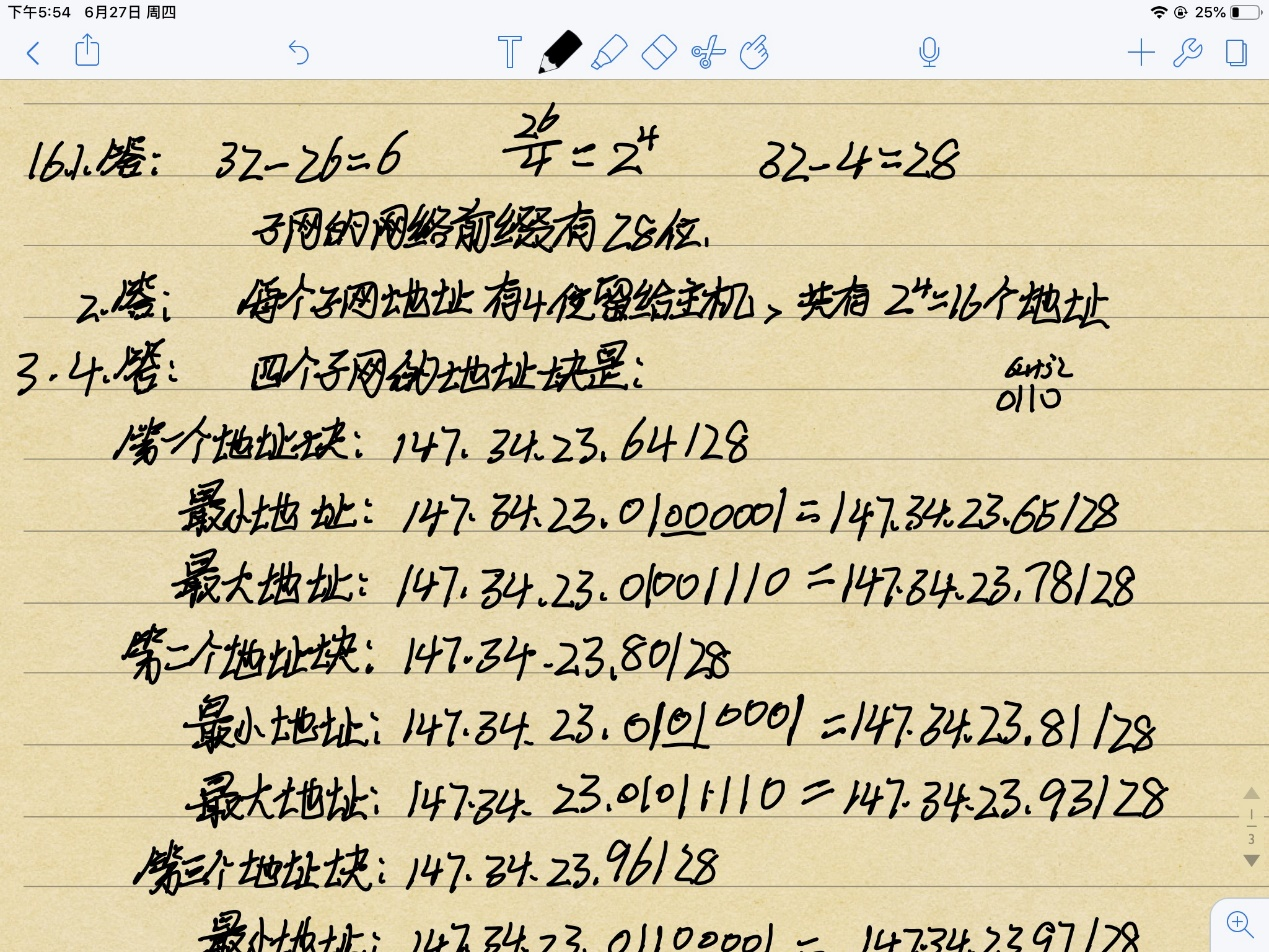 下午5:54 6月27日 周四
25%
T
16.1.答: 32-26=6 26/4=2^4 32-4=28
子网的网络前缀有28位.
2.答: 每个子网地址有4位留给主机, 共有2^4=16个地址
3.4.答: 四个子网的地址块是:
0110
第一个地址块: 147.34.23.64/28
最小地址: 147.34.23.01000001=147.34.23.65/28
最大地址: 147.34.23.01001110=147.34.23.78/28
第二个地址块: 147.34.23.80/28
最小地址: 147.34.23.01010001=147.34.23.81/28
最大地址: 147.34.23.01011110=147.34.23.93/28
第三个地址块: 147.34.23.96/28
最小地址: 147.34.23.01100001=147.34.23.97/28
1
3